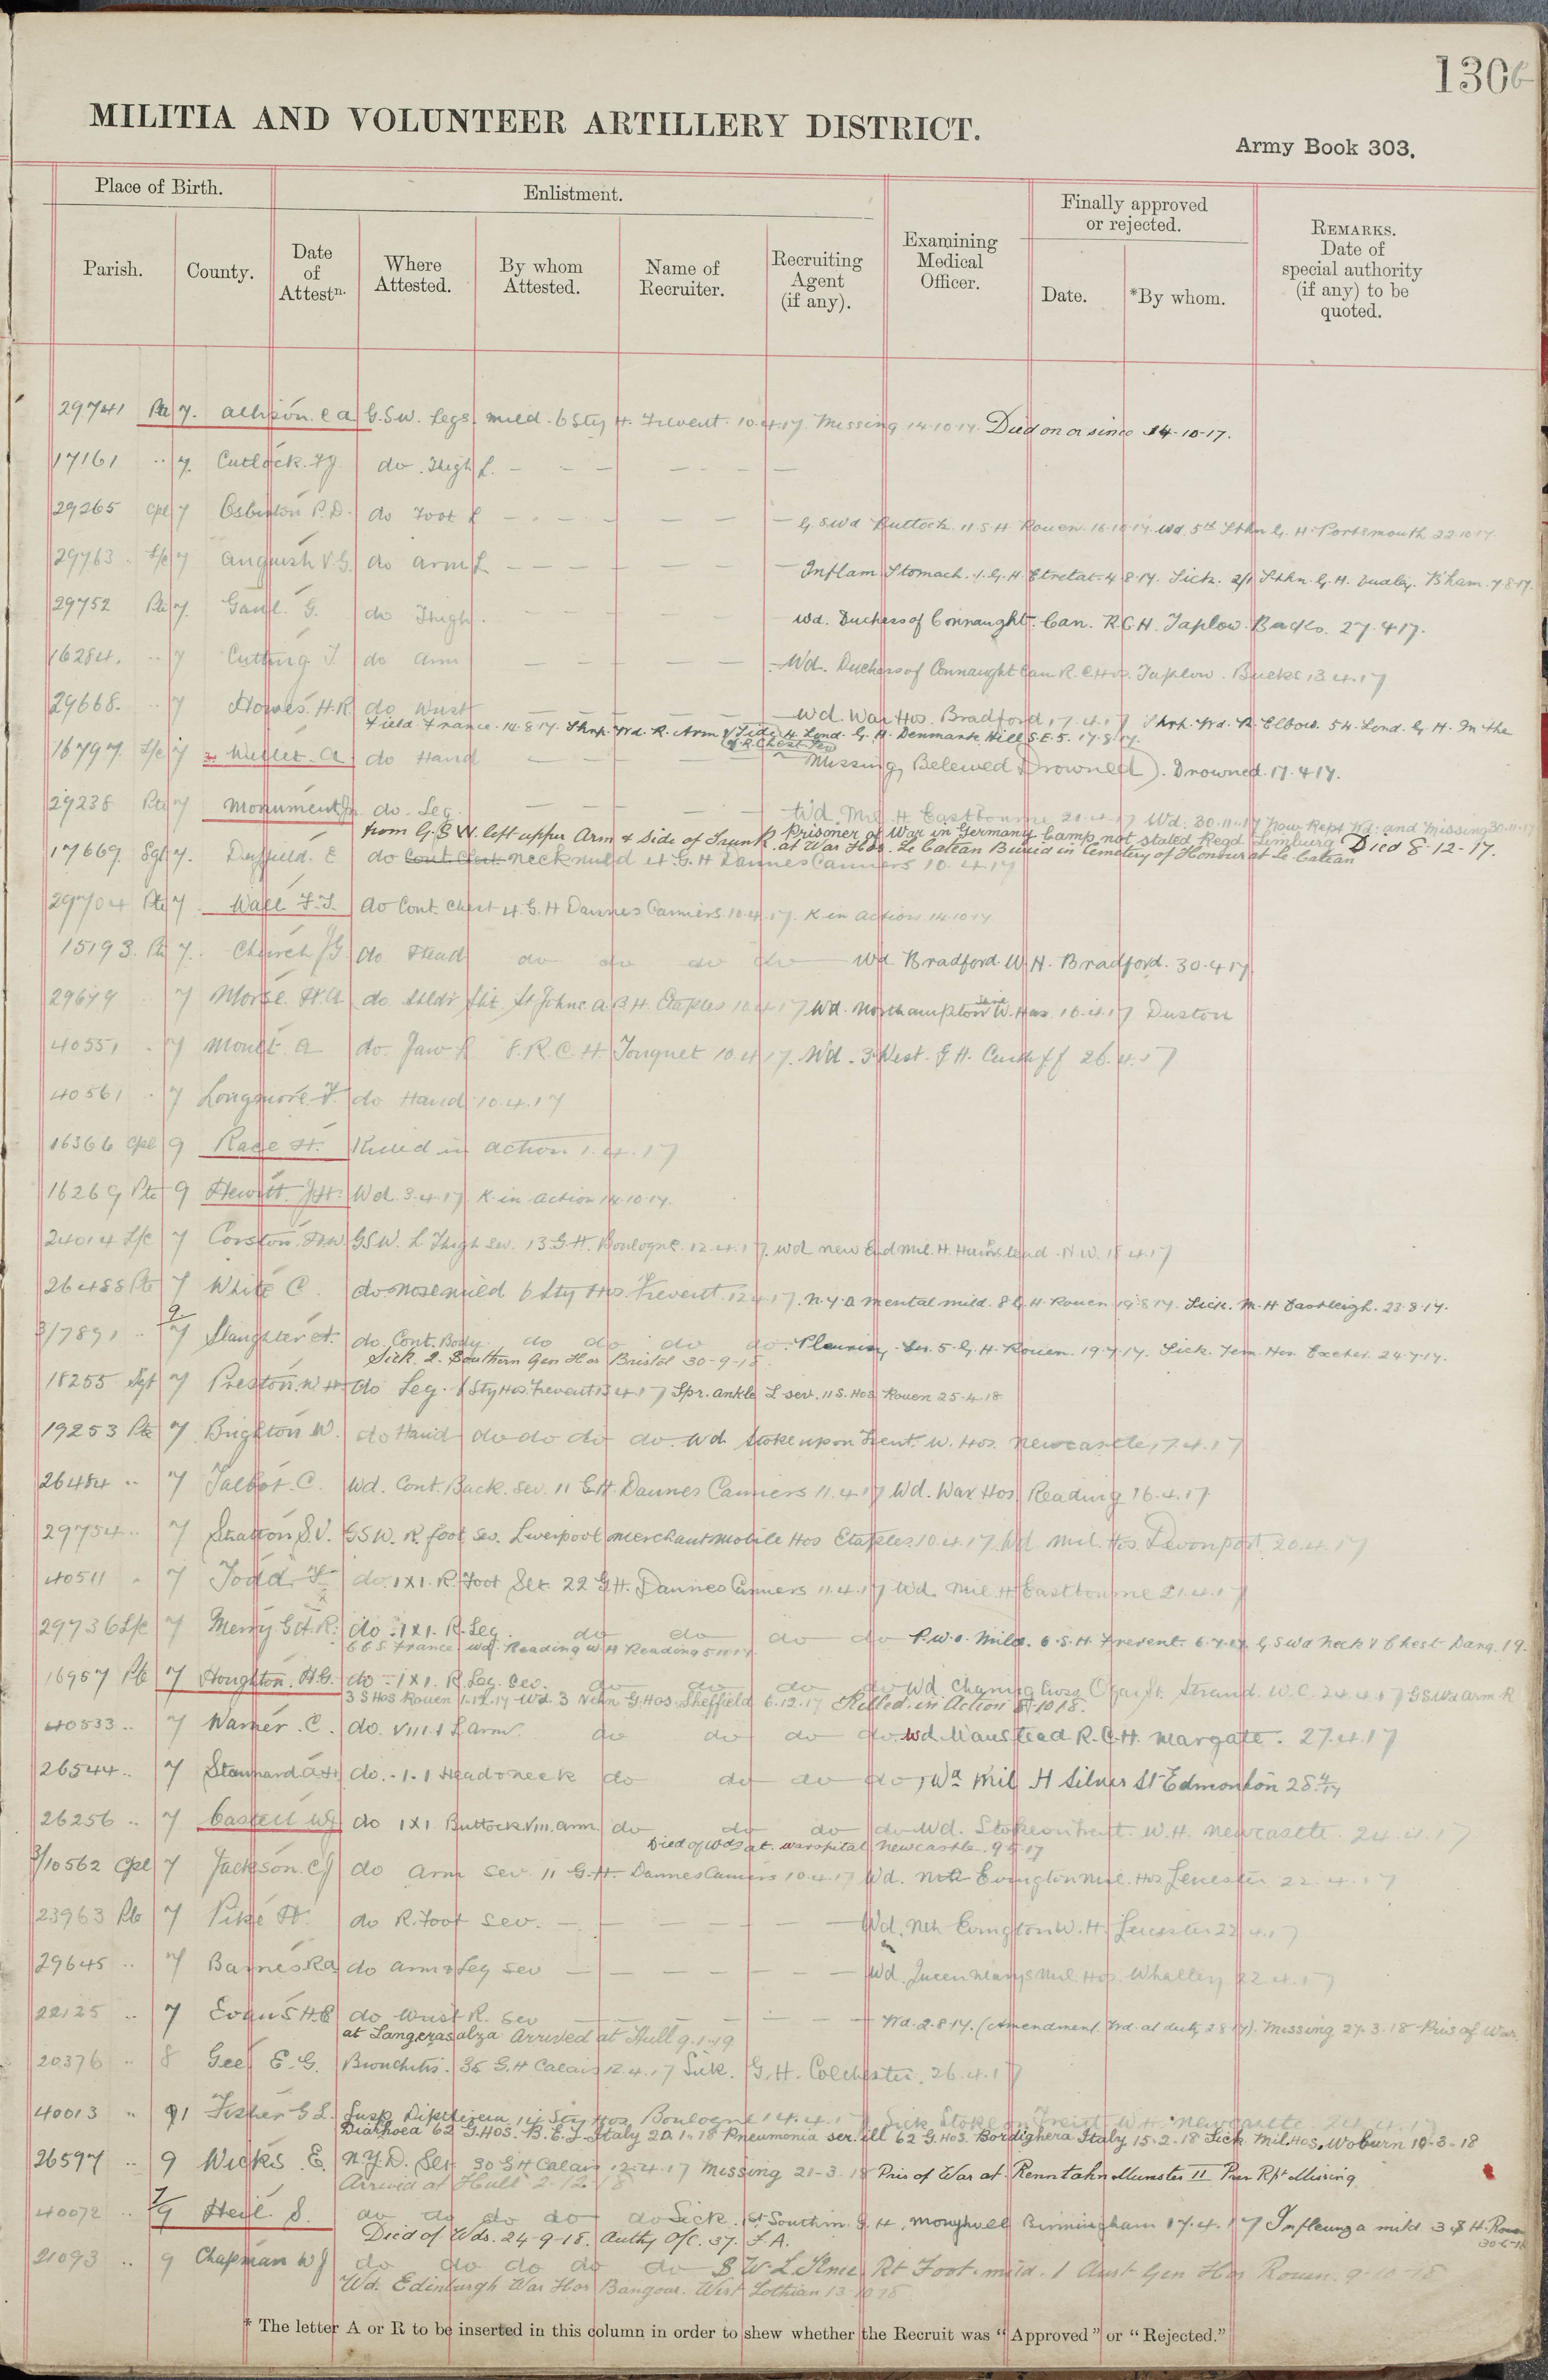 130
MILITIA AND VOLUNTEER ARTILLERY DISTRICT.
Army Book 303.
Place of Birth.
Enlistment.
Finally approved or rejected.
Parish.
County.
Date of Attestn.
Where Attested.
By whom Attested.
Name of Recruiter.
Recruiting Agent (if any).
Examining Medical Officer.
Date.
*By whom.
REMARKS. Date of special authority (if any) to be quoted.
29741 Pte 7. G.S.W. Legs. mild. 6 Sty H. Frevent. 10.4.17. Missing 14.10.17. Died on or since 14-10-17.
17161 .. 7. Cutlock. do. Thigh L.
29265 Cpl 7 P.D. do Foot L G.S.Wd Buttock. 11 S.H. Rouen. 16.10.17. Wd. 5th Sthn G. H. Portsmouth 22.10.17
29763 L/c 7 Anguish V.G. do arm L Inflam Stomach. 1. G.H. Etretat. 4.8.17. Sick. 2/1 Sthn. G.H. Dudley. B'ham. 7.8.17.
29752 Pte 7. Gaul. G. do Thigh. Wd. Duchess of Connaught. Can. R.C.H. Taplow. Bucks. 27.4.17.
16284. .. 7 Cutting. J. do Arm Wd. Duchess of Connaught Can R.C. Hos. Taplow. Bucks 13.4.17
29668. .. 7 Howes. H.R. do Wrist Wd. War Hos. Bradford 17.4.17 Shrp. Wd. R. Elbow. 54. Lond. G.H. In the
Field France. 14.8.17. Shrp. Wd. R. Arm & Side 4. Lond. G. H. Denmark Hill S.E.5. 17.8.17.
16797. L/c 7 A. do Hand Missing, Believed Drowned). Drowned. 17.4.17.
29238 Pte 7 Monument do. Leg. Wd. Mil. H. Eastbourne 20.4.17 Wd. 30.11.17 now Rept Wd. and Missing 30.11.17
from G.S.W. left upper Arm & Side of Trunk. at War Hos. Le Cateau Buried in Cemetery of Honour at Le Cateau
Prisoner of War in Germany Camp not stated Regd Limburg Died 8-12-17.
17669. Sgt 7. Duffield. E do Cont. Chest. neck mild 4. G.H Dannes Camiers 10.4.17
29704 Pte 7. Wall F.J. do Cont. Chest 4. G.H Dannes Camiers. 10.4.17. K in action 14.10.17
15193. Pte 7. Church J.G. do Head do do do do Wd Bradford. W.H. Bradford. 30.4.17
29679 7 Morse. H.A. do. Shldr Slt. St Johns A.B.H. Etaples 10.4.17 Wd. Northampton W. Hos. 16.4.17 Duston
40551 . 7 A do. Jaw R 8. R.C.H. Touquet 10.4.17. Wd. 3. West. G.H. Cardiff 26.4.17
40561 . 7 Longmore. F. do Hand 10.4.17
16366 Cpl 9 Race H. Killed in action 1.4.17
16269 Pte 9 Hewitt. J.H. Wd. 3.4.17 K in action 14.10.17.
24014 L/c 7 Corston. GSW. L Thigh Sev. 13 G.H. Boulogne. 12.4.17. Wd new End Mil. H. Hampstead. N.W. 18.4.17
26488 Pte 7 White C. do nose mild 6 Sty Hos. Frevent. 12.4.17. N.Y.D mental mild. 8 G.H. Rouen 19.8.17. Sick. M.H Eastleigh. 23.8.17.
3/7891 .. 7 Slaughter A. do. Cont. Body. do do do do. Pleurisy. Sev. 5. G.H. Rouen. 19.7.17. Sick. Tem. Hos. Exeter. 24.7.17.
Sick. 2. Southern Gen Hos Bristol 30-9-18
18255 Sgt 7 Preston. W.H do Leg. 6 Sty Hos. Frevent 13.4.17 Spr. ankle L sev. 11 S. Hos Rouen 25.4.18
19253 Pte 7 Brighton W. do Hand do do do do. Wd Stoke upon Trent. W. Hos. Newcastle, 17.4.17
26484 .. 7 Talbot. C. Wd. Cont. Back. Sev. 11 G.H. Dannes Camiers 11.4.17 Wd. War Hos Reading 16.4.17
29754 .. 7 Stratton S.V. GSW. R. foot Sev. Liverpool Merchants Mobile Hos Etaples. 10.4.17. Wd Mil. Hos. Devonport. 20.4.17
40511 . 7 Todd. F. do. 1X1. R. Foot Slt. 22 G.H. Dannes Camiers 11.4.17 Wd. Mil. H. Eastbourne 21.4.17
29736 L/c 7 Merry G.H.R. do. 1X1. R. Leg. do do do do P.U.O. Mild. 6. S.H. Frevent. 6.7.17. G.S.Wd Neck & Chest. Dang. 19.
C.C.S. France Wd. Reading W.H. Reading 5.11.17
16957 Pte 7 Houghton. H.G. do - 1X1. R. Leg. Sev. do do do do Wd Charing Cross Strand. W.C. 24.4.17 GSWd Arm. R
3 S Hos Rouen 1.12.17 Wd. 3 Nthn G. Hos. Sheffield 6.12.17 Killed in Action
40533 .. 7 Warner. C. do. VIII.1 L arm. do do do do. Wd. R.C.H. Margate. 27.4.17
26544 .. 7 Stannard A.H. do. 1.1 Head & neck do do do do, Wd Mil. H Silver St Edmonton 28.4.17
26256 .. 7 do 1X1 Buttock VIII. arm. do do do do Wd. Stoke on Trent. W.H. Newcastle. 24.4.17
Died of Wds at. Warspital Newcastle.
3/10562 Cpl 7 Jackson. C.J do arm sev. 11 G.H. Dannes Camiers 10.4.17 Wd. Nth Evington Mil. Hos Leicester 22.4.17
23963 Pte 7 Pike H. do R. Foot Sev. Wd. Nth Evington W.H. Leicester 22.4.17
29645 .. 7 Barnes R.A. do arm & Leg sev Wd. Queen Marys Mil. Hos. Whalley 22.4.17
22125 .. 7 Evans H.E do wrist R. sev Wd. 2.8.17. (Amendment. Wd. at duty 2.8.17). Missing 27.3.18 Pris of War.
at Langerasalza Arrived at Hull 9.1.19
20376 .. 8 Gee E.G. Bronchitis. 35 G.H Calais 12.4.17 Sick. G.H. Colchester. 26.4.17
40013 .. 91 Fisher G.L. Susp. Diphtheria 14 Sty Hos. Boulogne 14.4.17 Sick Stoke on Trent. W.H. Newcastle. 24.4.17
Diarhoea 62 G. Hos. B.E.F. Italy 20.1.18 Pneumonia ser. ill 62 G. Hos. Bordighera Italy 15.2.18 Sick Mil. Hos. Woburn 10-3-18
26597 .. 9 Wickes. E. N.Y.D. Slt 30 G.H Calais 12.4.17 Missing 21-3-18 Pris of War at Renntahn Munster II Prev Rpt Missing
Arrived at Hull 2/12/18
40072 .. 7/9 S. do do do do do Sick. 1st Southrn. G.H. Monyhull Birmingham 17.4.17 Influenza mild 3 S H. Rouen
Died of Wds. 24-9-18. Auth O/C. 37. F.A.
21093 .. 9 Chapman W J do do do do do S.W. L Knee, Rt Foot. mild. 1 Aust Gen Hos Rouen. 9-10-18
Wd. Edinburgh War Hos Bangour. West Lothian 13-10-18
* The letter A or R to be inserted in this column in order to shew whether the Recruit was “Approved” or “Rejected.”